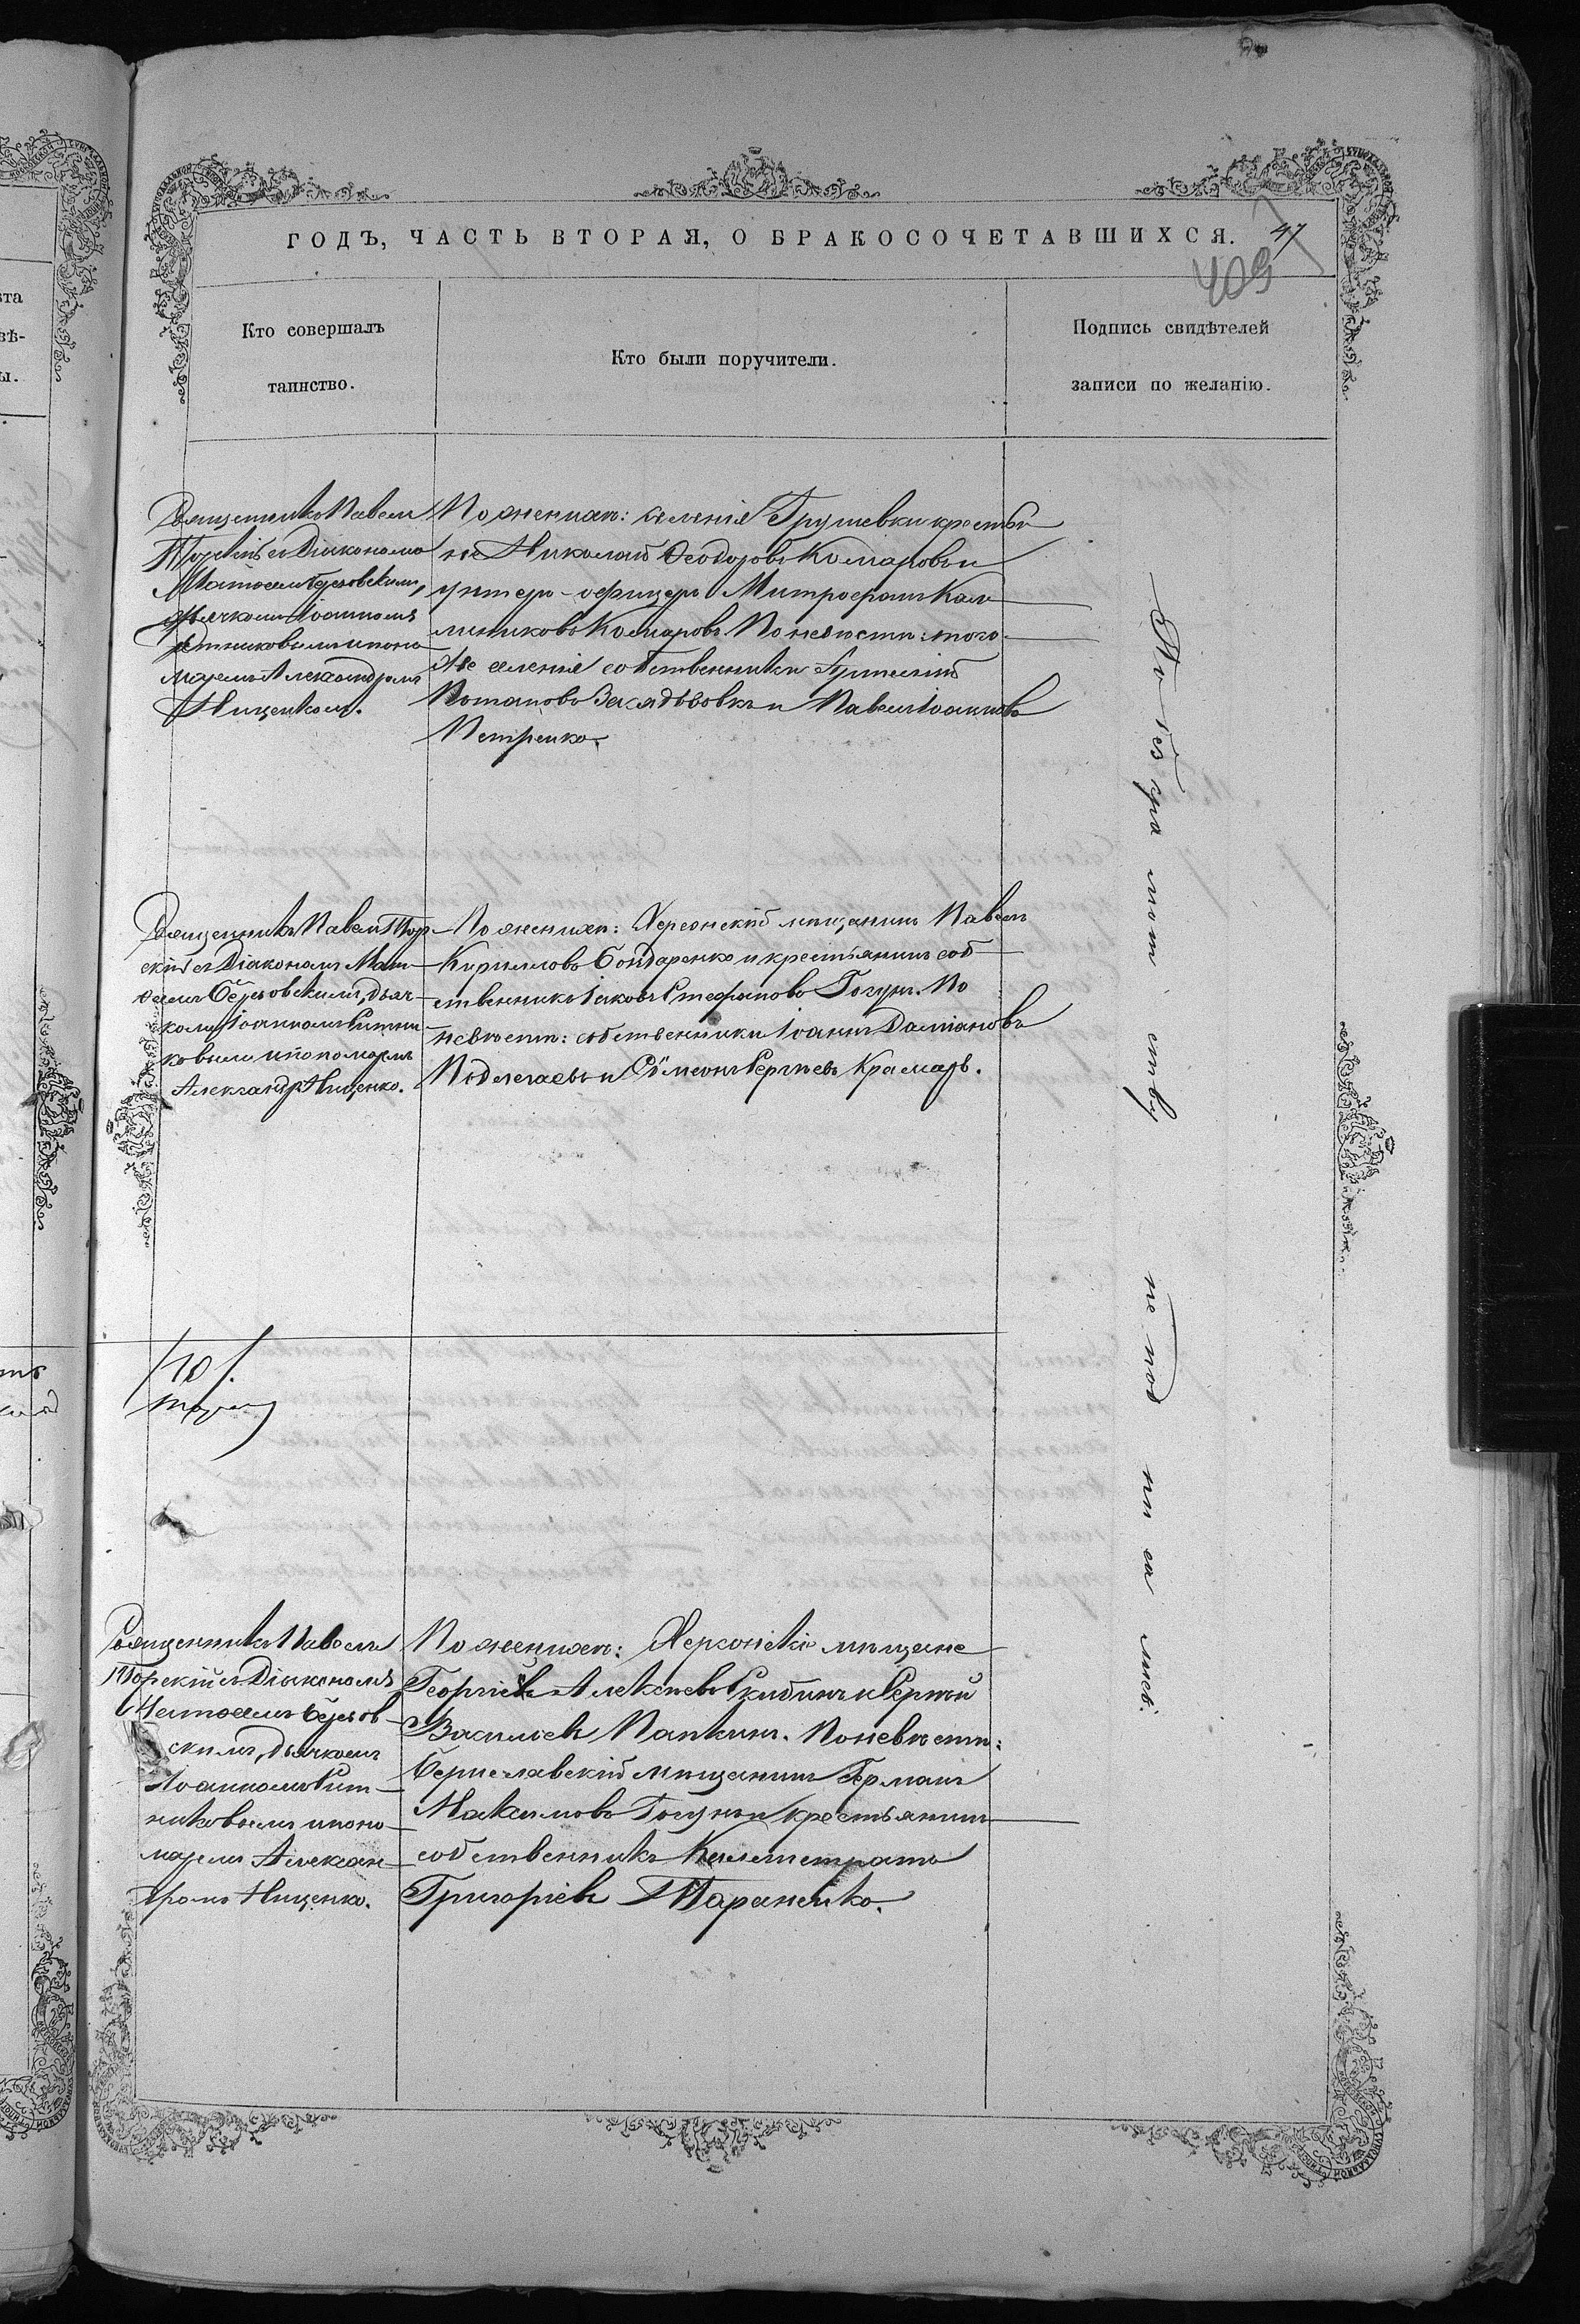 ГОДЪ, ЧАСТЬ ВТОРАЯ, О БРАКОСОЧЕТАВШИХСЯ.
47
409
Кто совершалъ
таинство.
Кто были поручители.
Подпись свидѣтелей
записи по желанію.
Священникъ Павелъ
Торскій съ Діакономъ
дьячкомъ Іоанномъ
Ситниковымъ и поно-
маремъ Александромъ
Нищенкомъ.
По женихѣ: селенія Грушевки крестья-
не Николай Ѳеодоровъ Комаровъ и
унтеръ-офицеръ Митрофанъ Кал-
линиковъ Комаровъ. По невѣстѣ: того-
же селенія собственники
Потаповъ и Павелъ Іоанновъ
Петренко.
Священникъ Павелъ Тор-
скій съ Діакономъ Мат-
ѳеемъ дьяч-
комъ Іоанномъ Ситни-
ковымъ и пономаремъ
Александр. Нищенко.
По женихѣ: Херсонскій мѣщанинъ Павелъ
Кирилловъ Бондаренко и крестьянинъ соб-
ственникъ Іаковъ Стефановъ Гогунъ. По
невѣстѣ: собственники Іоаннъ Даміановъ
и Сѵмеонъ Сергѣевъ Крамарь.
10
Священникъ Павелъ
Торскій съ Діакономъ
скимъ, дьячкомъ
Іоанномъ Сит-
никовымъ и поно-
маремъ Алексан-
дромъ Нищенко.
По женихѣ: Херсонскіе мѣщане
Георгій Алексѣевъ Скибинъ и Сергѣй
Васильевъ Папкинъ. По невѣстѣ:
Бериславскій мѣщанинъ Германъ
Максимовъ Гогунъ и крестьянинъ
собственникъ Каллистратъ
Григорьевъ Тараненко.
По безграмотству не подписались.